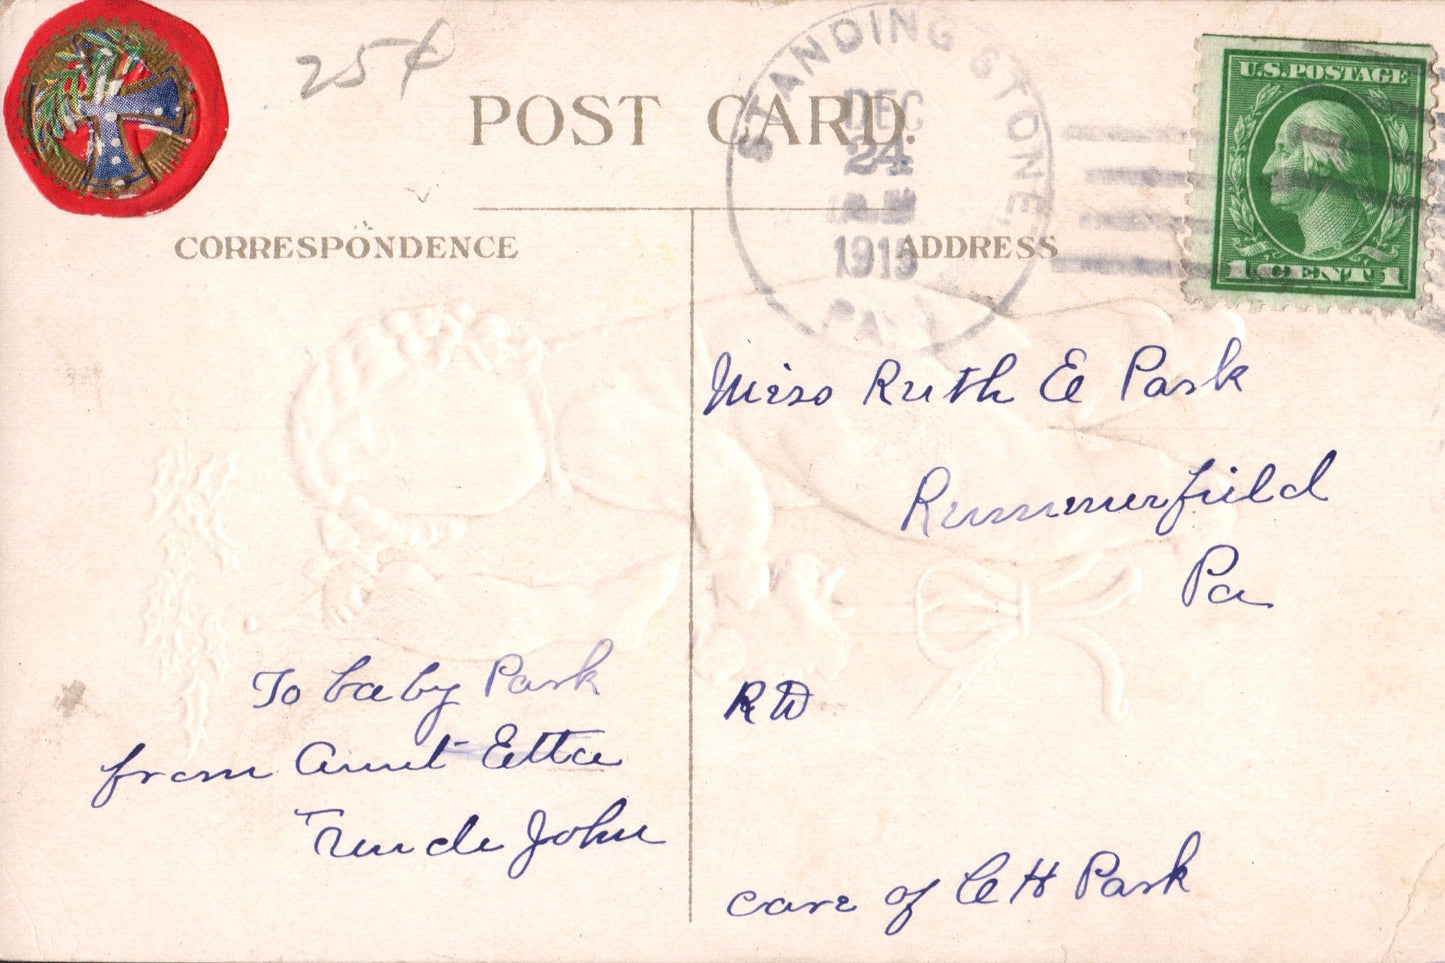 25¢
POST CARD.
STANDING STONE,
DEC
24
1915
PA.
U.S.POSTAGE
1 CENT 1
CORRESPONDENCE
ADDRESS
Miss Ruth E Park
Rummerfield
Pa
To baby Park
from Aunt Etta
Uncle John
RD
care of C H Park